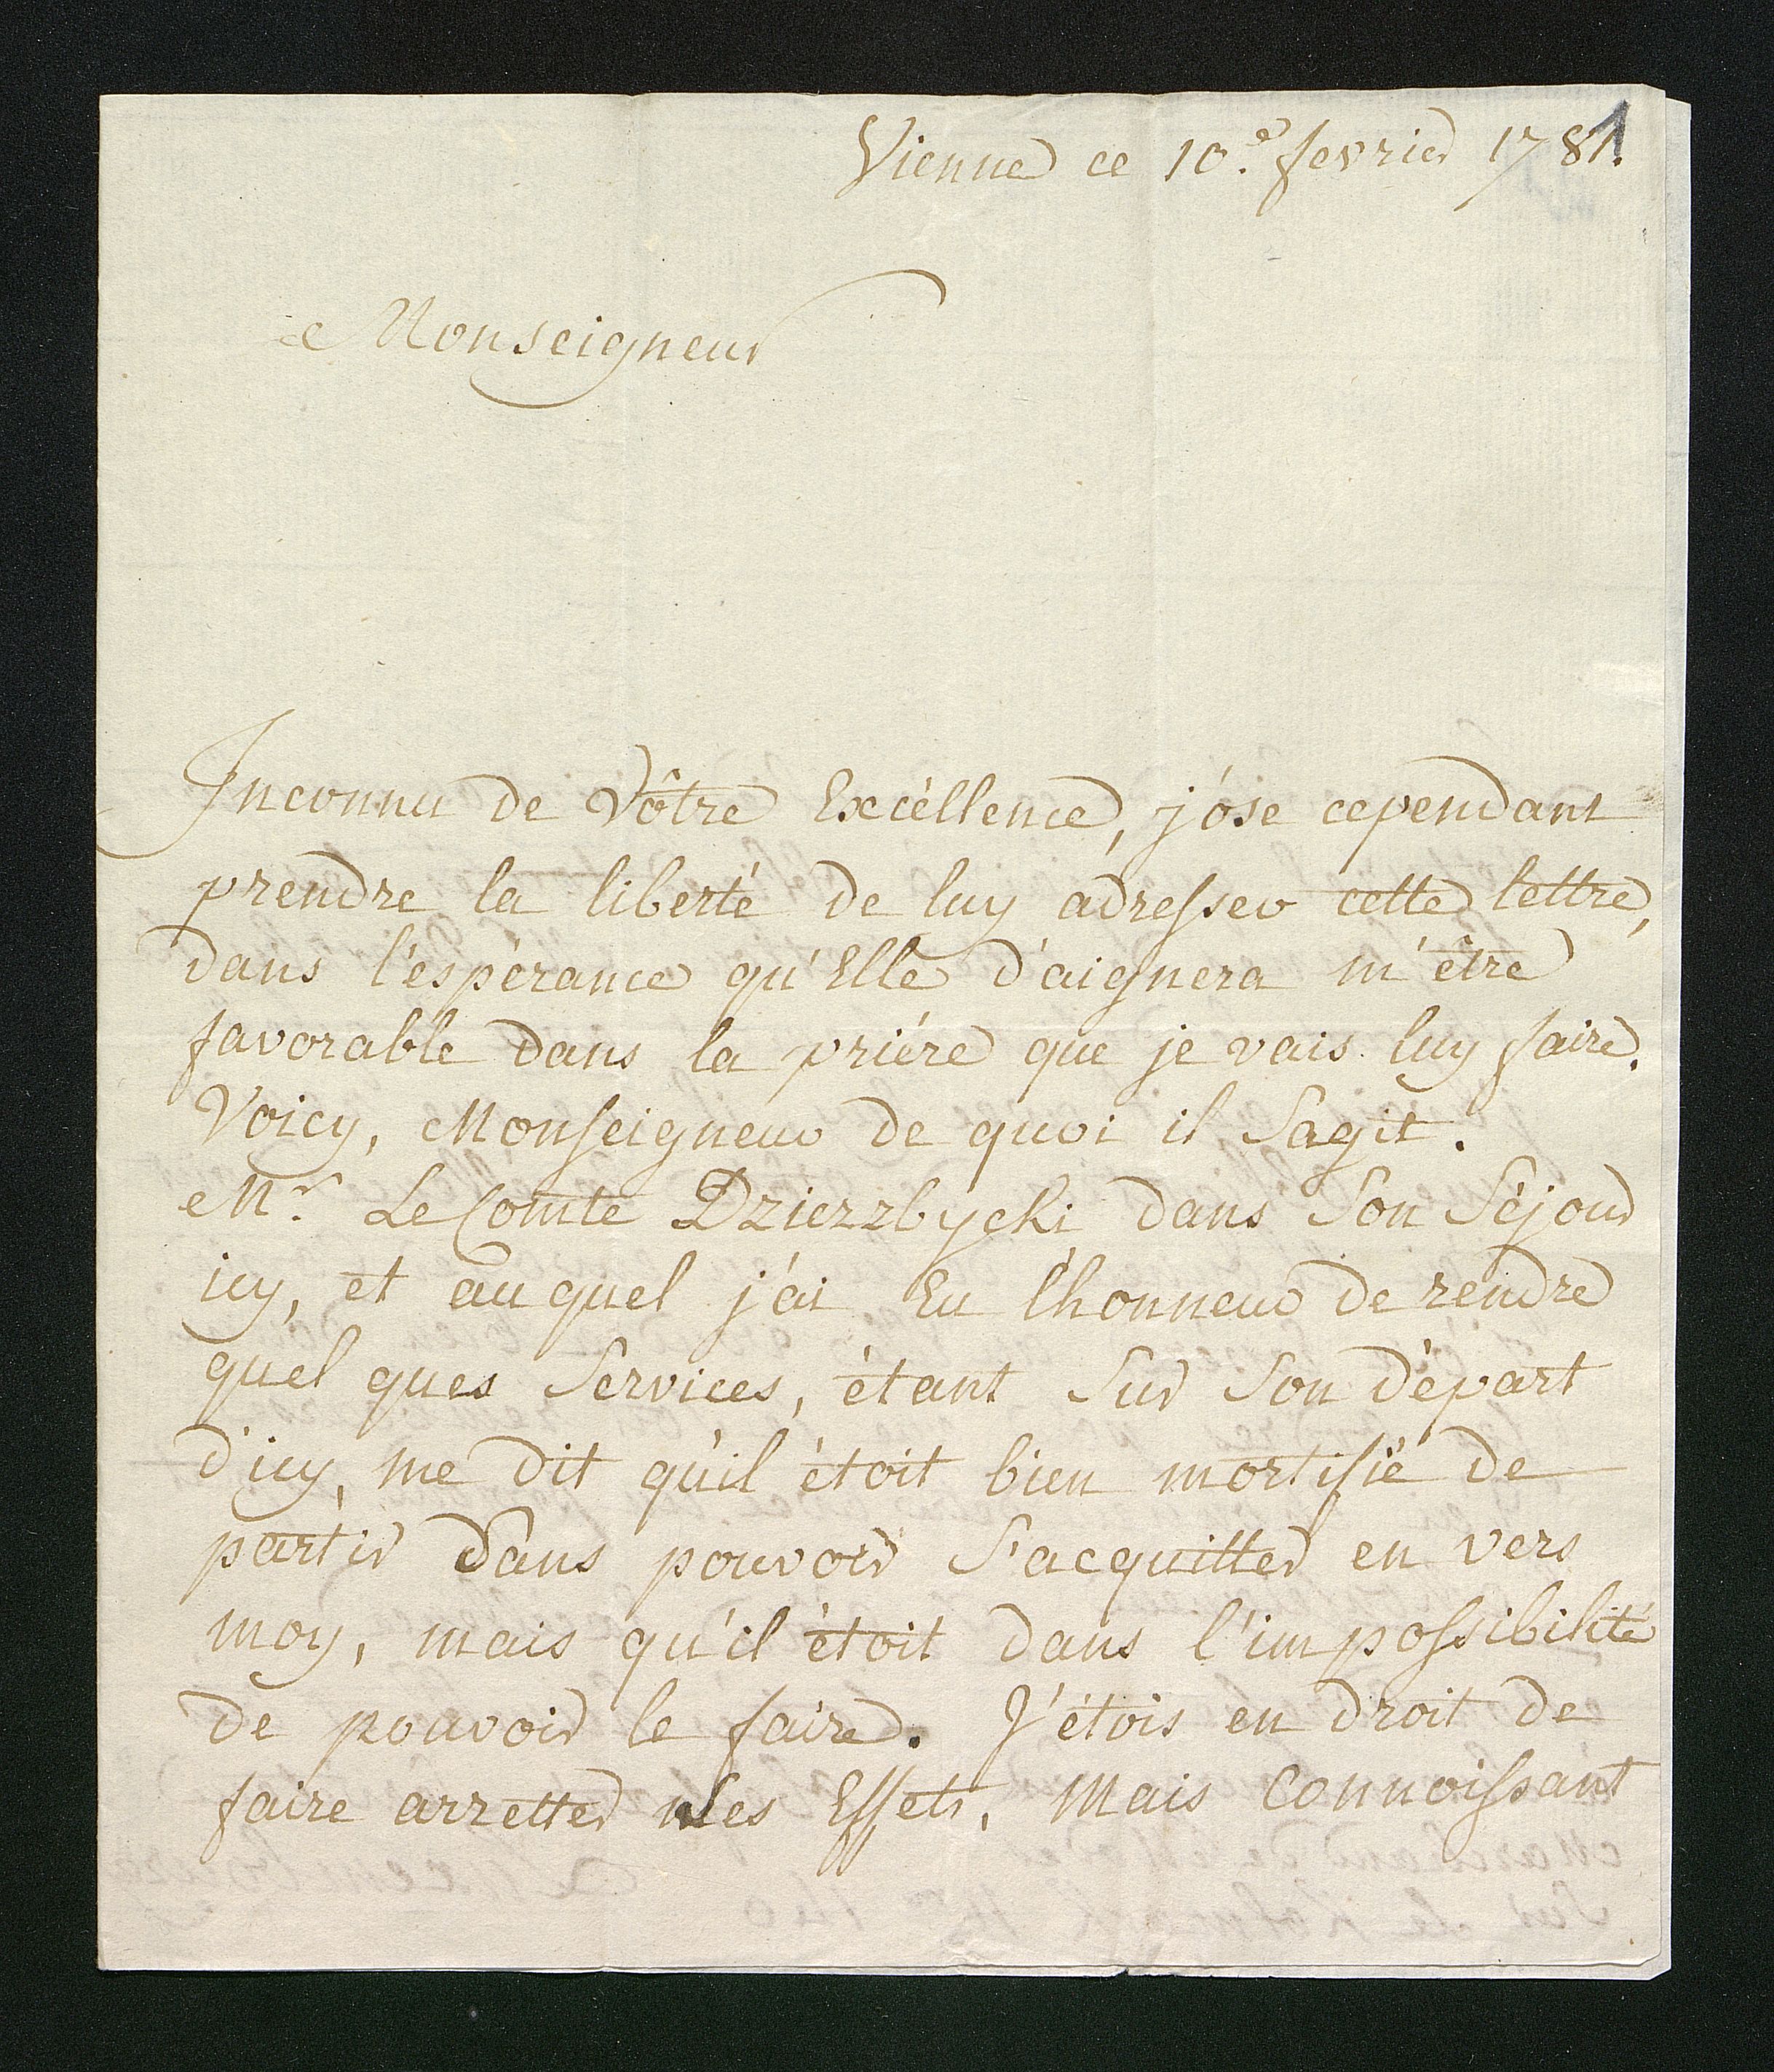 Vienne ce 10.e fevrier 1781.
Monseigneur
Inconnu de Vôtre Excéllence, j'óse cependant
prendre la liberté de luy adresser cette lettre,
dans l'espérance qu'Elle d'aignera m'être
favorable dans la priére que je vais luy faire.
Voicy, Monseigneur de quoi il Sagit.
Mr. Le Comte Dzierzbycki dans Son Séjour
icy, et au quel j'ai Eu l'honneur de rendre
quel ques Services, étant Sur Son départ
d'icy, me dit qu'il étoit bien mortifié de
partir Sans pouvoir S'acquitter en vers
moy, mais qu'il étoit dans l'impossibilité
de pouvoir le faire. J'étois en droit de
faire arretter Ses Effets, Mais Connoissant